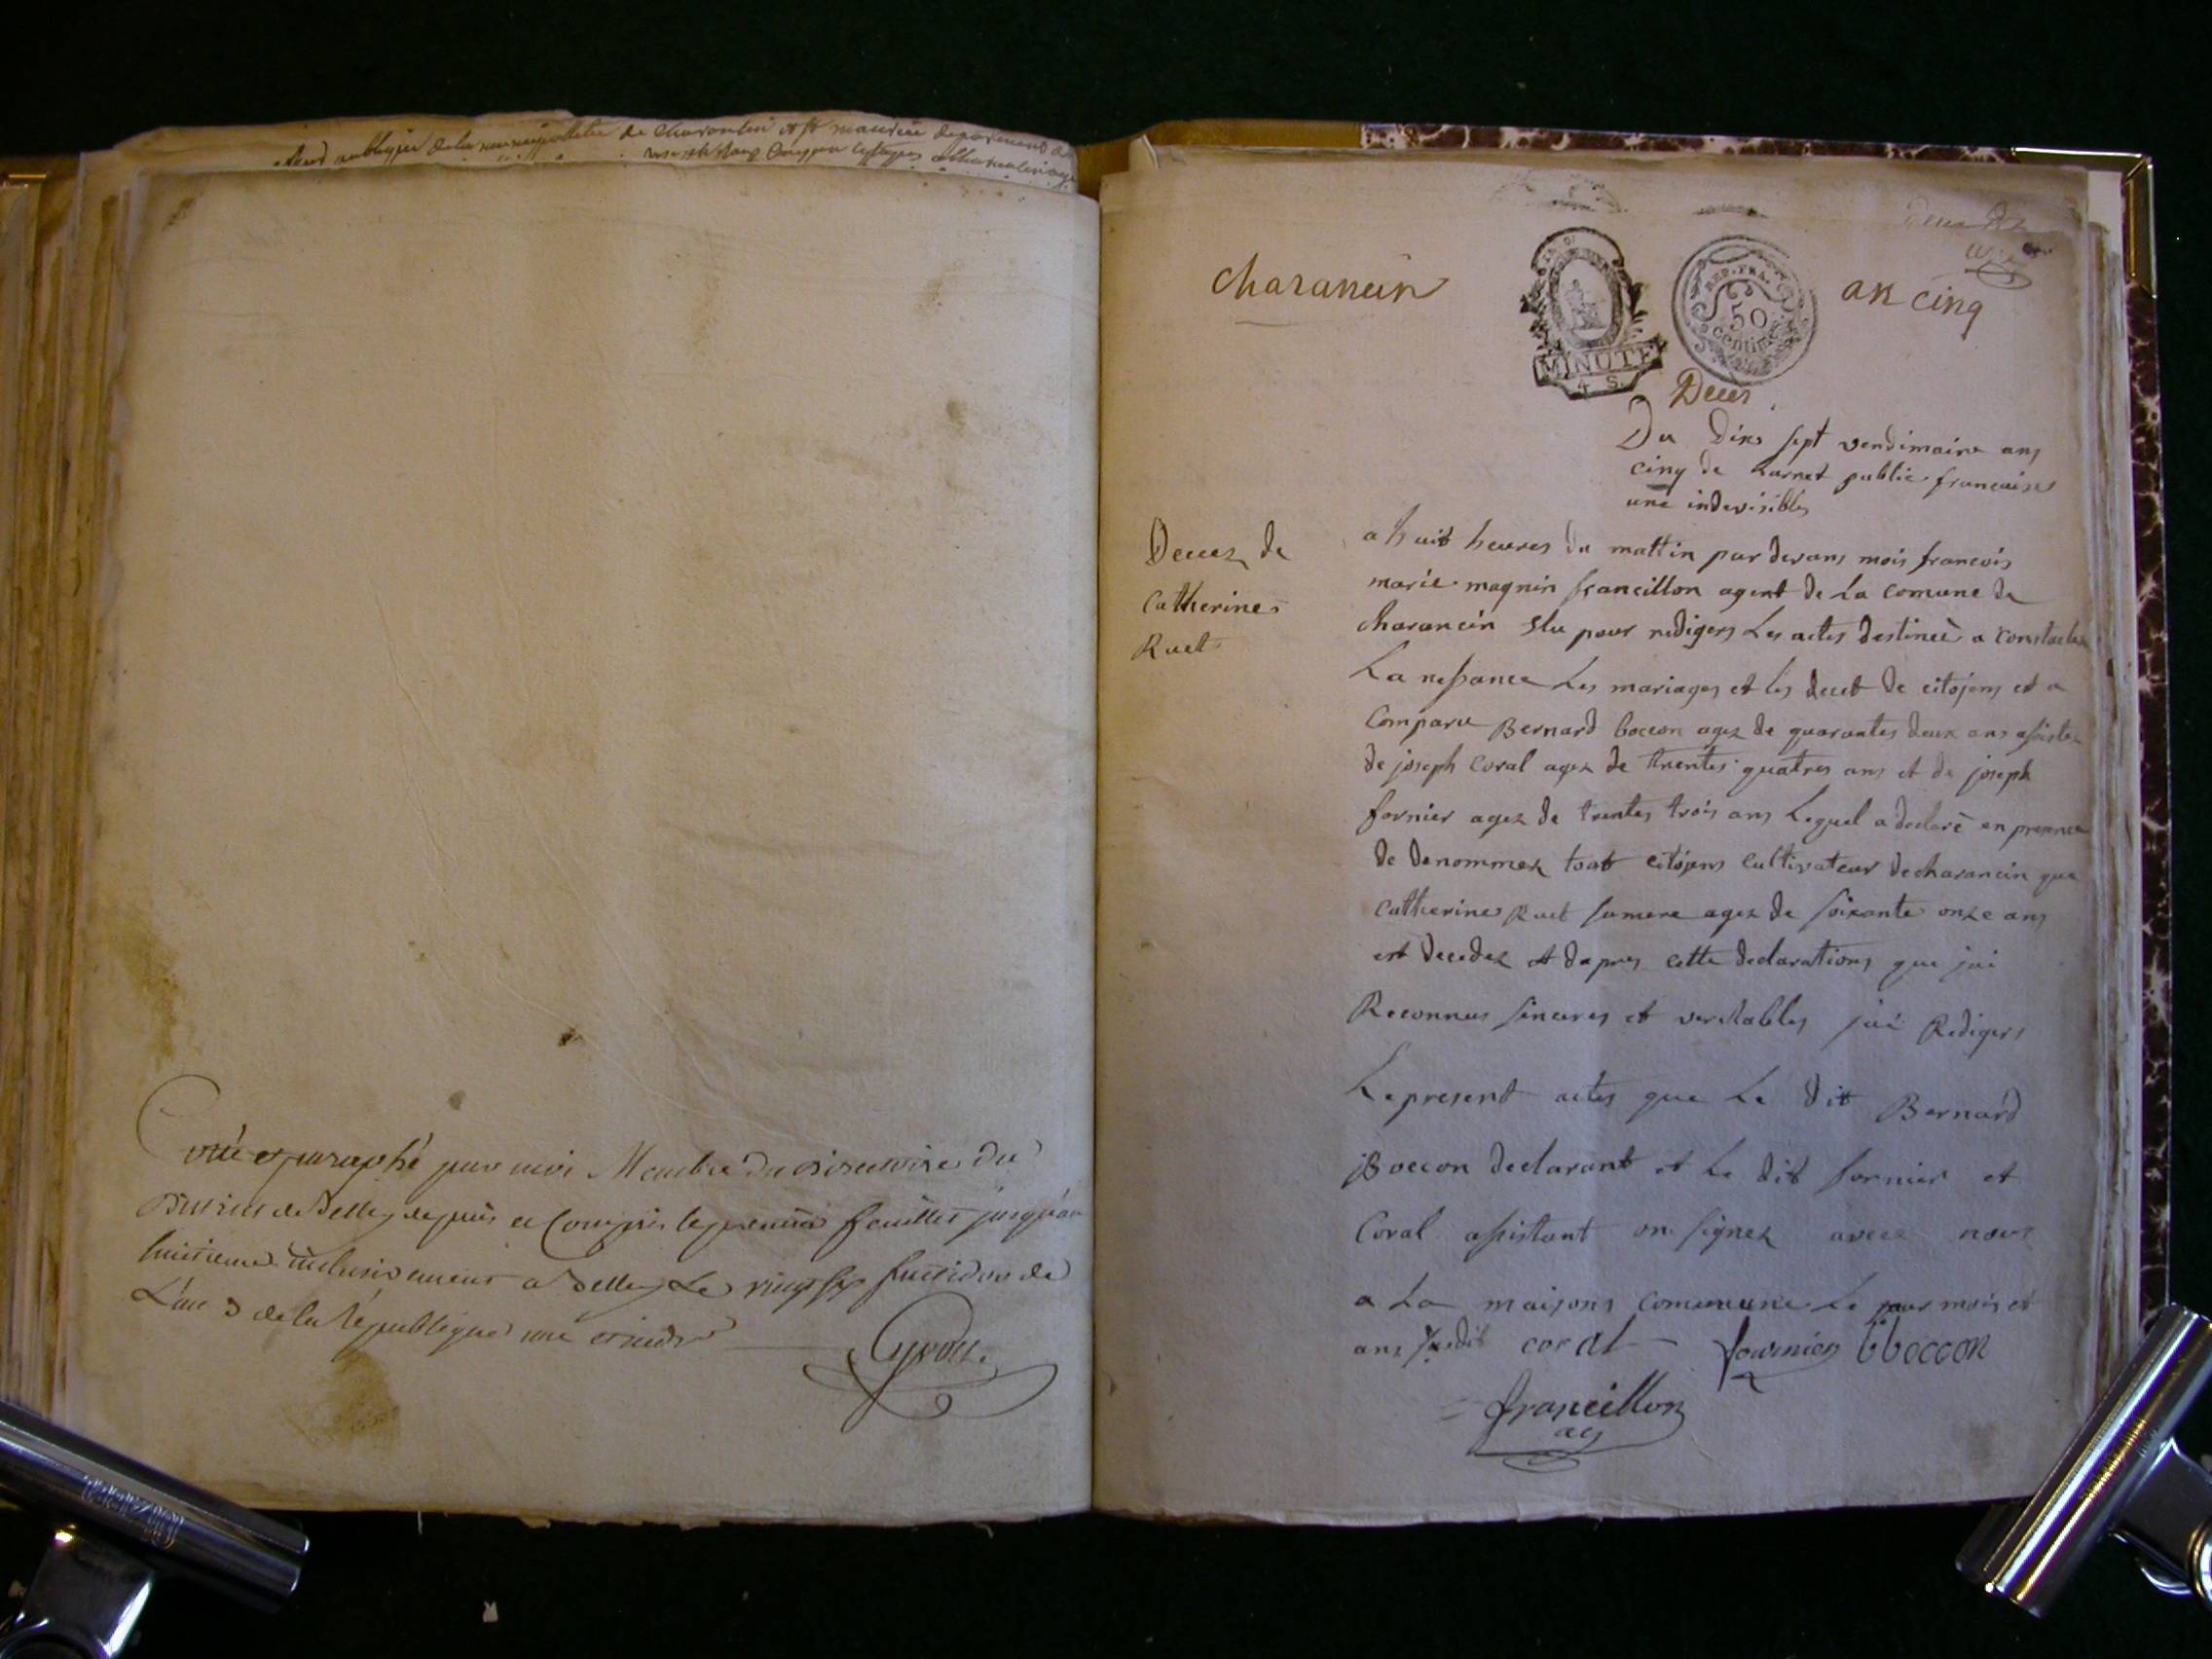 publique de la municipalité de charancin et st maurice departement de
Cotté et paraphé par moi Membre du Directoire du
District de Belley depuis et Compris le premier feuillet jusqu'au
huitieme inclusivement a Belley Le vingt six fructidor de
L'an 3 de la République une et indiv
charancin
MINUTE
4 S.
REP. FRA.
50
centimes
an cinq
Deces
Du dixs sept vendimaire ans
cinq de Larnet public francaises
une indevisibles
Decez de
Catherines
Ruet
a huit heures du mattin par devans mois francois
marie magnin francillon agent de La comune de
charancin Elu pour redigers Les actes destineé a constater
La nessance Les mariages et les decet de citojens et a
Comparu Bernard boccon agez de quarantes deux ans assistez
de joseph Coral agez de trentes quatres ans et de joseph
fornier agez de trentes trois ans Lequel a declaré en presence
de denommez tout citojens cultivateur de charancin que
catherines Ruet samere agez de soixante onze ans
est decedez et dapres cette declarations que jai
Reconnus sinceres et veritables jai Redigers
Le present actes que Le dit Bernard
Boccon declarant et Le dit fornier et
Coral assistant on signez avecz nous
a La maisons commune Le jour mois et
ans susdit coral fournier b boccon
francillon
ag